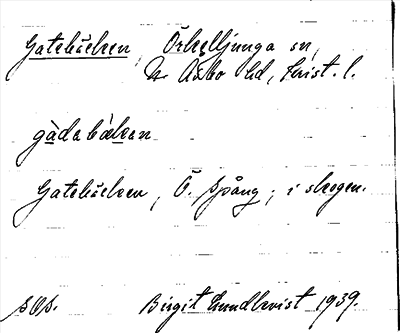 Gatebäcken, Örkelljunga sn,
N. Åsbo hd, Krist. l.
gàdabàkan
Gatebäcken, Ö. Spång; i skogen.
Birgit Lundkvist 1939.